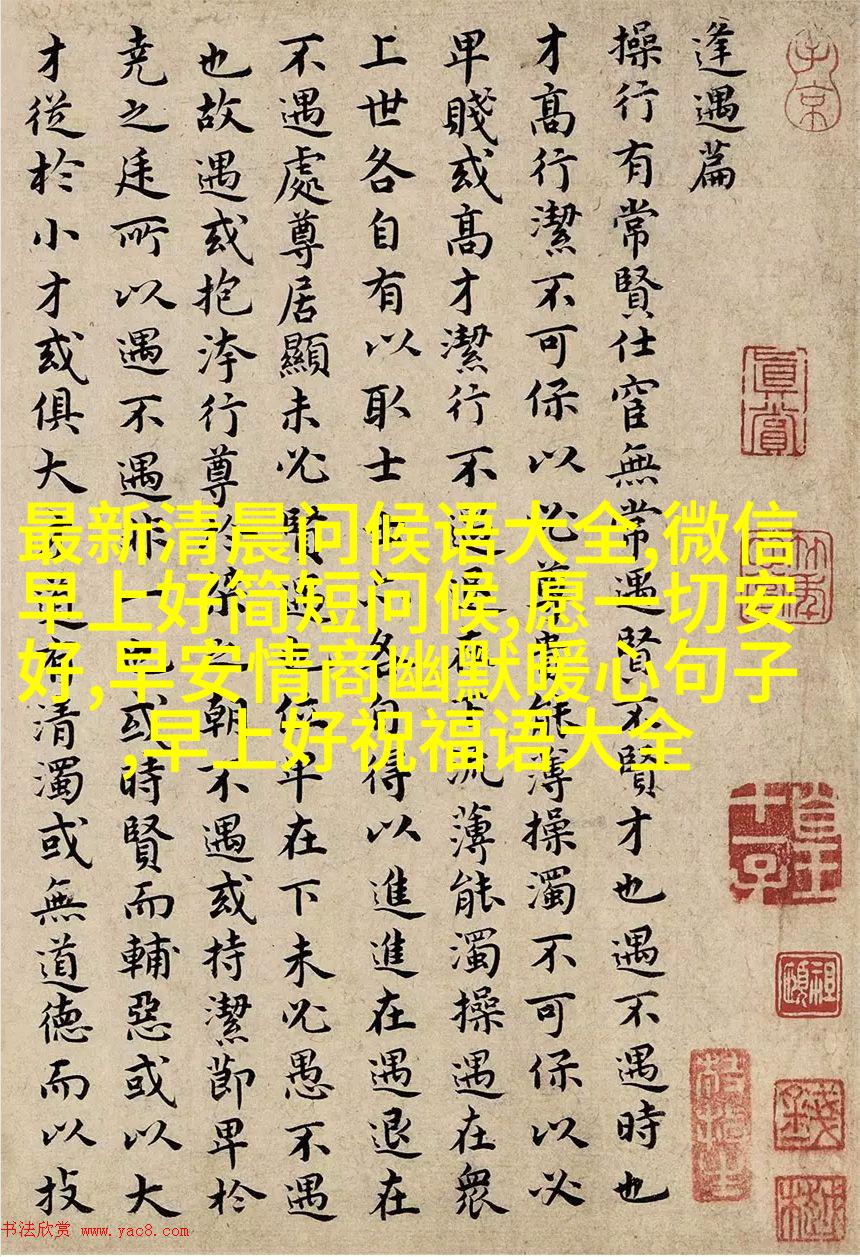 逢遇篇
操行有常賢仕宦無常遇賢不賢才也遇不遇時也
才高行潔不可保以必尊貴能薄操濁不可保以必
卑賤或高才潔行不遇退在下流薄能濁操遇在衆
上世各自有以取士士亦各自得以進進在遇退在
不遇處尊居顯未必賢遇也位卑在下未必愚不遇
也故遇或抱洿行尊於桀之朝不遇或持潔節卑於
尭之廷所以遇不遇非一也或時賢而輔惡或以大
才從於小才或俱大才道有清濁或無道德而以技
最新清晨问候语大全,微信
早上好简短问候,愿一切安
好,早安情商幽默暖心句子
,早上好祝福语大全
真賞
书法欣赏 www.yac8.com